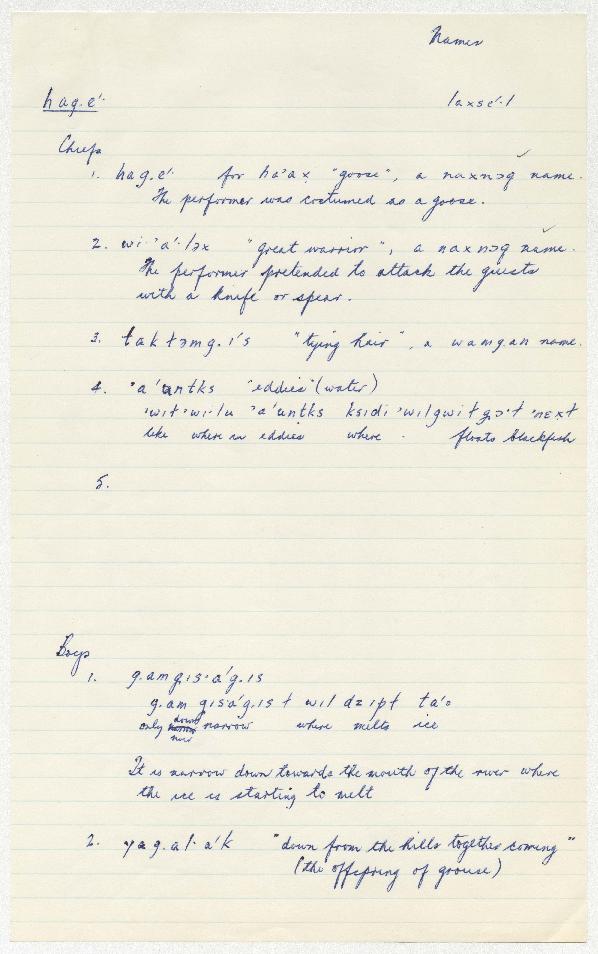 Names
hag.e´· laxse´·l
Chiefs
1. hag.e´· for ha'ax̣ "goose", a naxnɔq name.
The performer was costumed as a goose.
2. wi·'a´·lɔx "great warrior", a naxnɔq name.
The performer pretended to attack the guests
with a knife or spear.
3. taktəmg.i´s "tying hair", a wamg.an name.
4. 'a´untks "eddies" (water)
'wıt'wi·lu 'a´untks ksıdi 'wılgwıtg̣ɔ't 'nɛxt
like where in eddies where · floats blackfish
5.
Boys
1. g.amg.ıs·a´g.ıs
g.am g.ısa´g.ıst wıl dzıpt ta´o
only down narrow where melts ice
It is narrow down towards the mouth of the river where
the ice is starting to melt
2. yag.al·a´k "down from the hills together coming"
(the offspring of grouse)